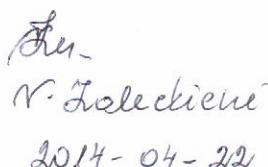 V. Zaleckienė
2014-04-22